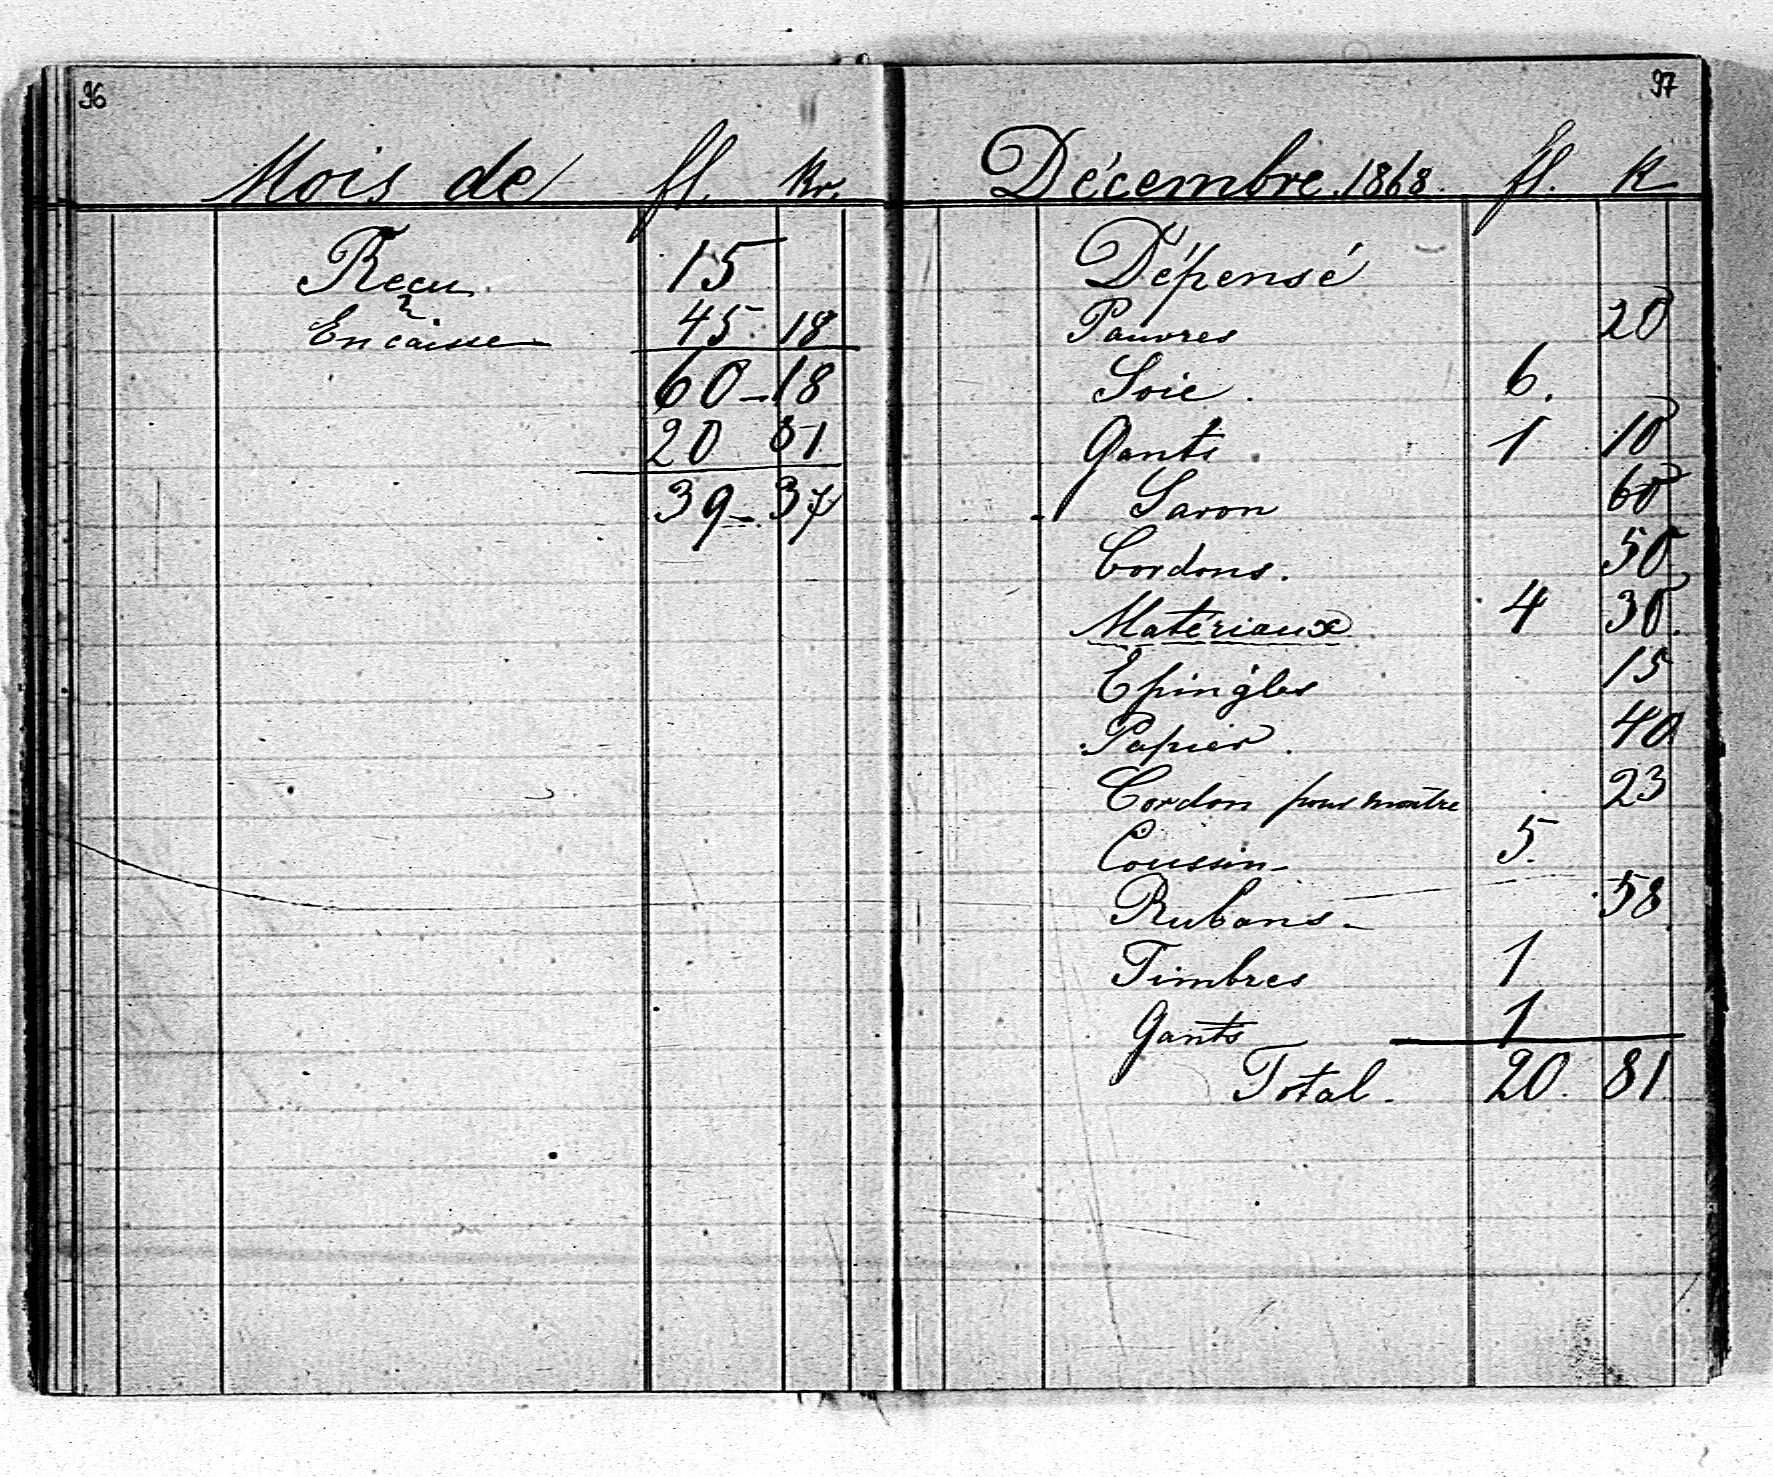 96
Mois de fl. Kr.
Reçu 15
En caisse 45. 18
60 - 18
20 81
39 - 37
97
Décembre. 1868. fl. K
Dépensé
Pauvres 20
Soie. 6.
Gants. 1 10
Savon 60
Cordons. 50
Matériaux 4 30.
Epingles 15
Papier. 40
Cordon pour montre 23
Coussin - 5.
Rubans - 58
Timbres 1
Gants 1
Total. 20. 81